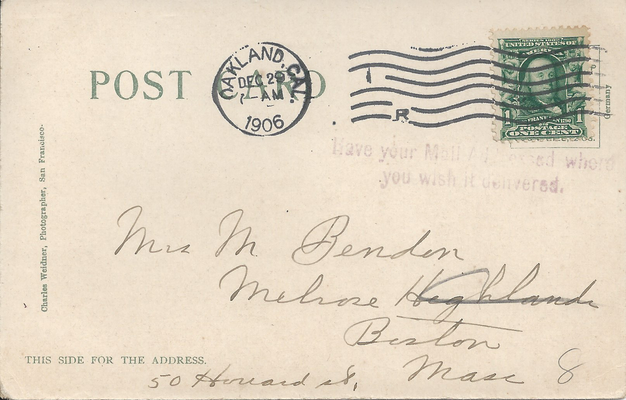 POST CARD
OAKLAND, CAL.
DEC 29
7- AM
1906
1
R
SERIES 1902
UNITED STATES OF
FRANKLIN
POSTAGE
ONE CENT
Germany
Have your Mail Addressed where
you wish it delivered.
Charles Weidner, Photographer, San Francisco.
Mrs M. Bendon
Melrose Highlands
Boston
Mass 8
THIS SIDE FOR THE ADDRESS.
50 Howard st,